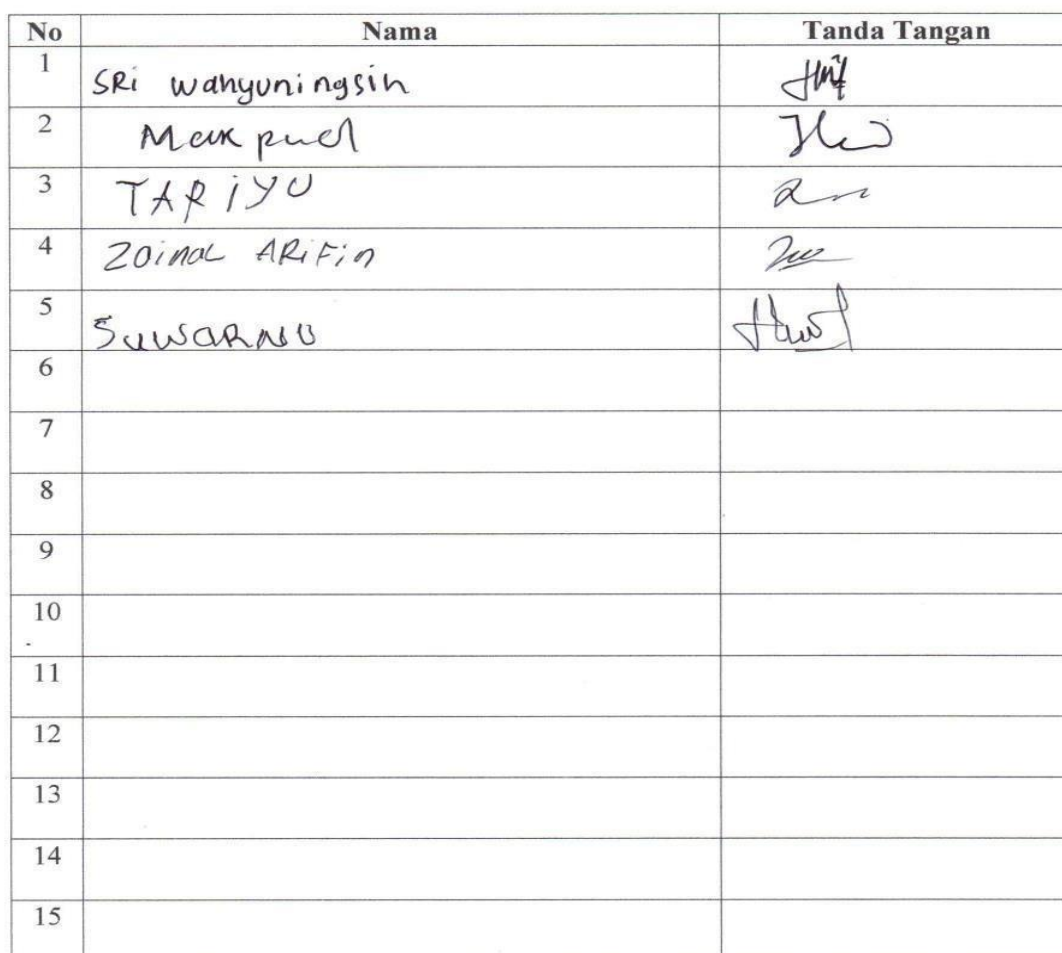 No Nama Tanda Tangan
1 SRi wahyuningsih
2 Makpuel
3 TARiYU
4 ZainaL ARiFin
5 SuWaRNO
6
7
8
9
10
11
12
13
14
15